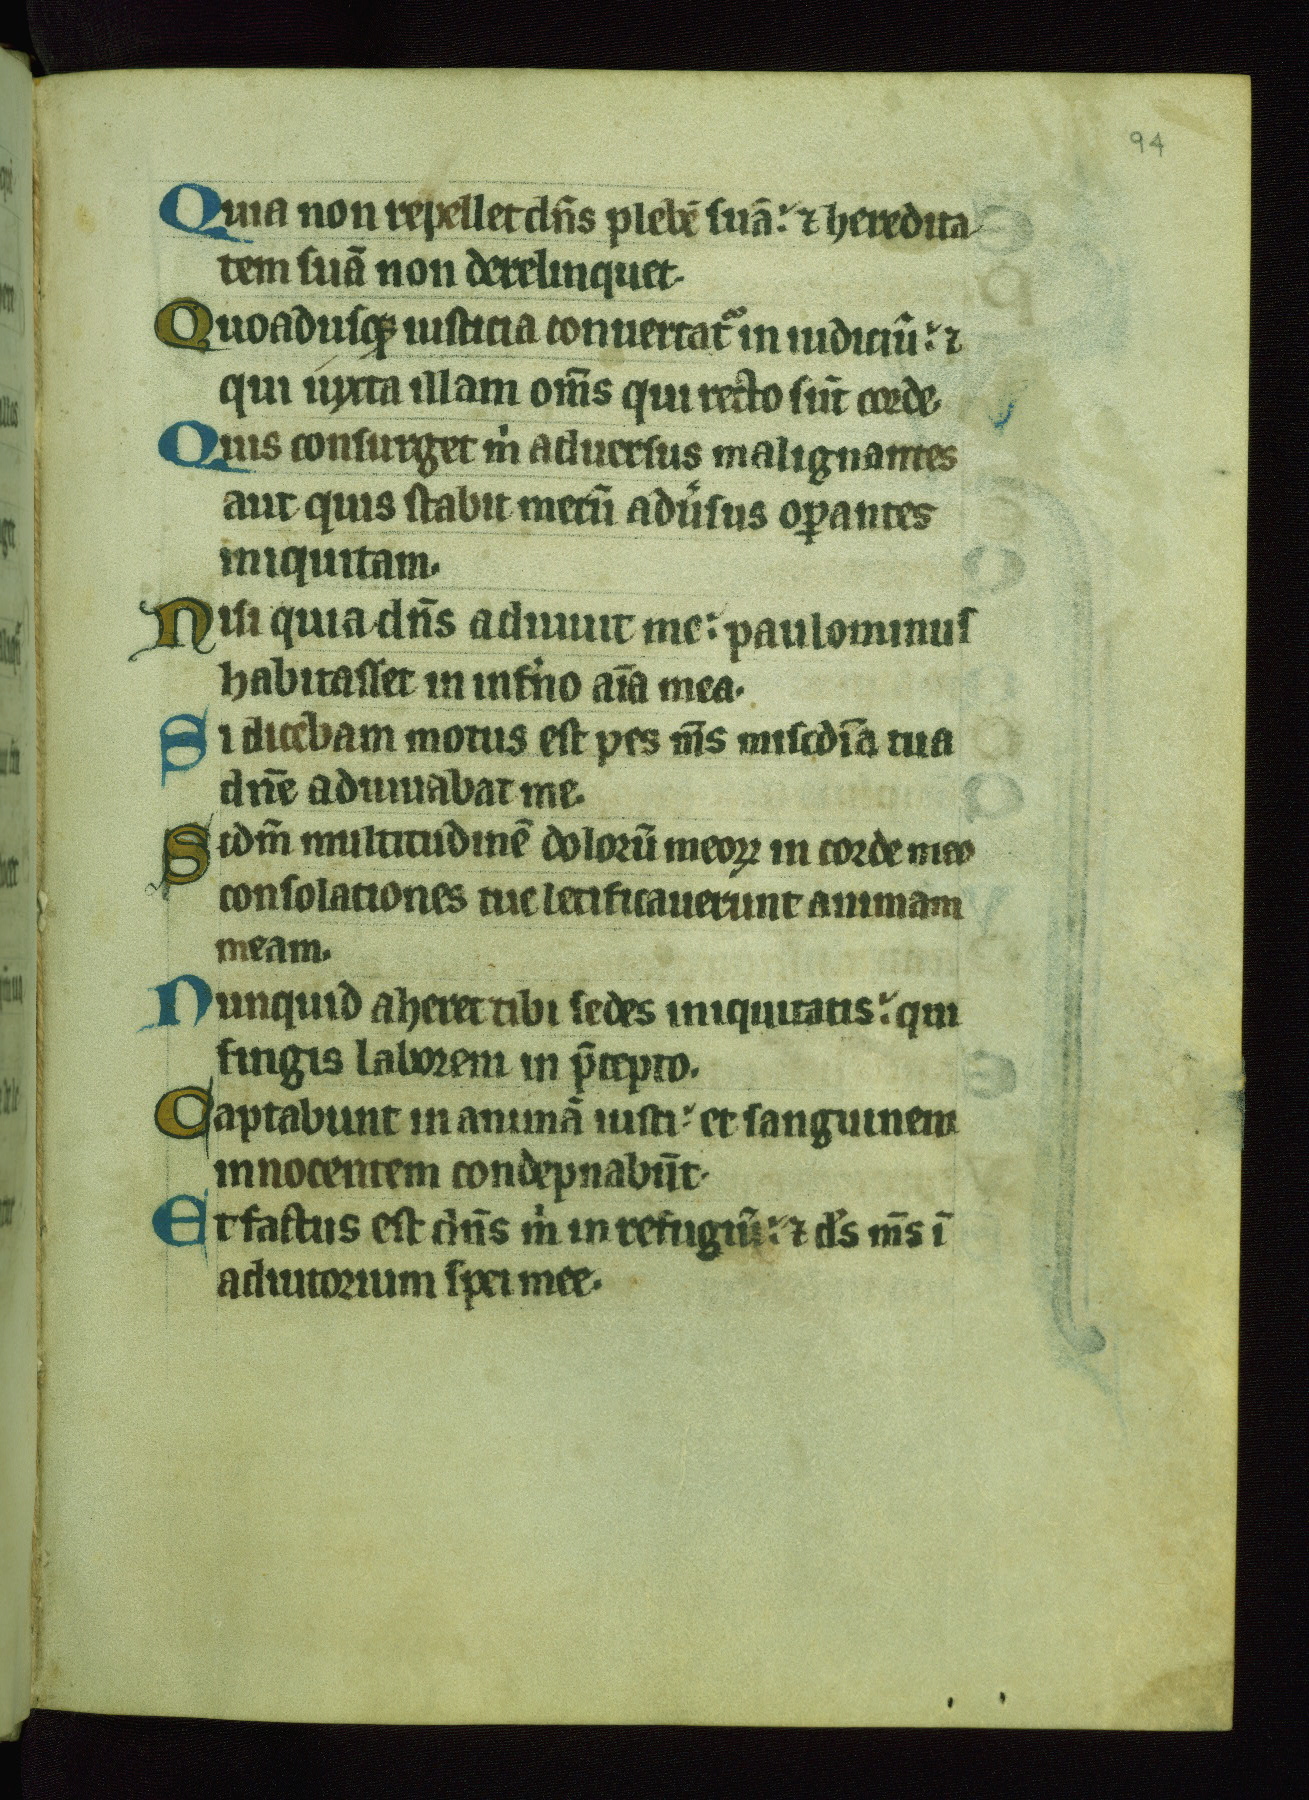 94
Quia non repellet dn̄s plebē suā: ⁊ heredita
tem suā non derelinquet.
Quoadusq̨ iusticia conuertat᷑ in iudiciū: ⁊
qui iuxta illam om̄s qui recto sūt corde.
Quis consurget m̄ aduersus malignantes
aut quis stabit mecū adūsus oꝑantes
iniquitam.
Nisi quia dn̄s adiuuit me: paulominus
habitasset in inf̄no aīa mea.
Si dicebam motus est pes m̄s misc̄dīa tua
dn̄e adiuuabat me.
Scdm̄ multitudinē dolorū meoꝝ in corde meo
consolationes tue letificauerunt animam
meam.
Nunquid aheret tibi sedes iniquitatis: qui
fingis laborem in p̄cepto.
Captabunt in animā iusti: et sanguinem
innocentem condepnabūt.
Et factus est dn̄s m̄ in refugiū: ⁊ ds̄ m̄s ī
adiutorium spei mee.